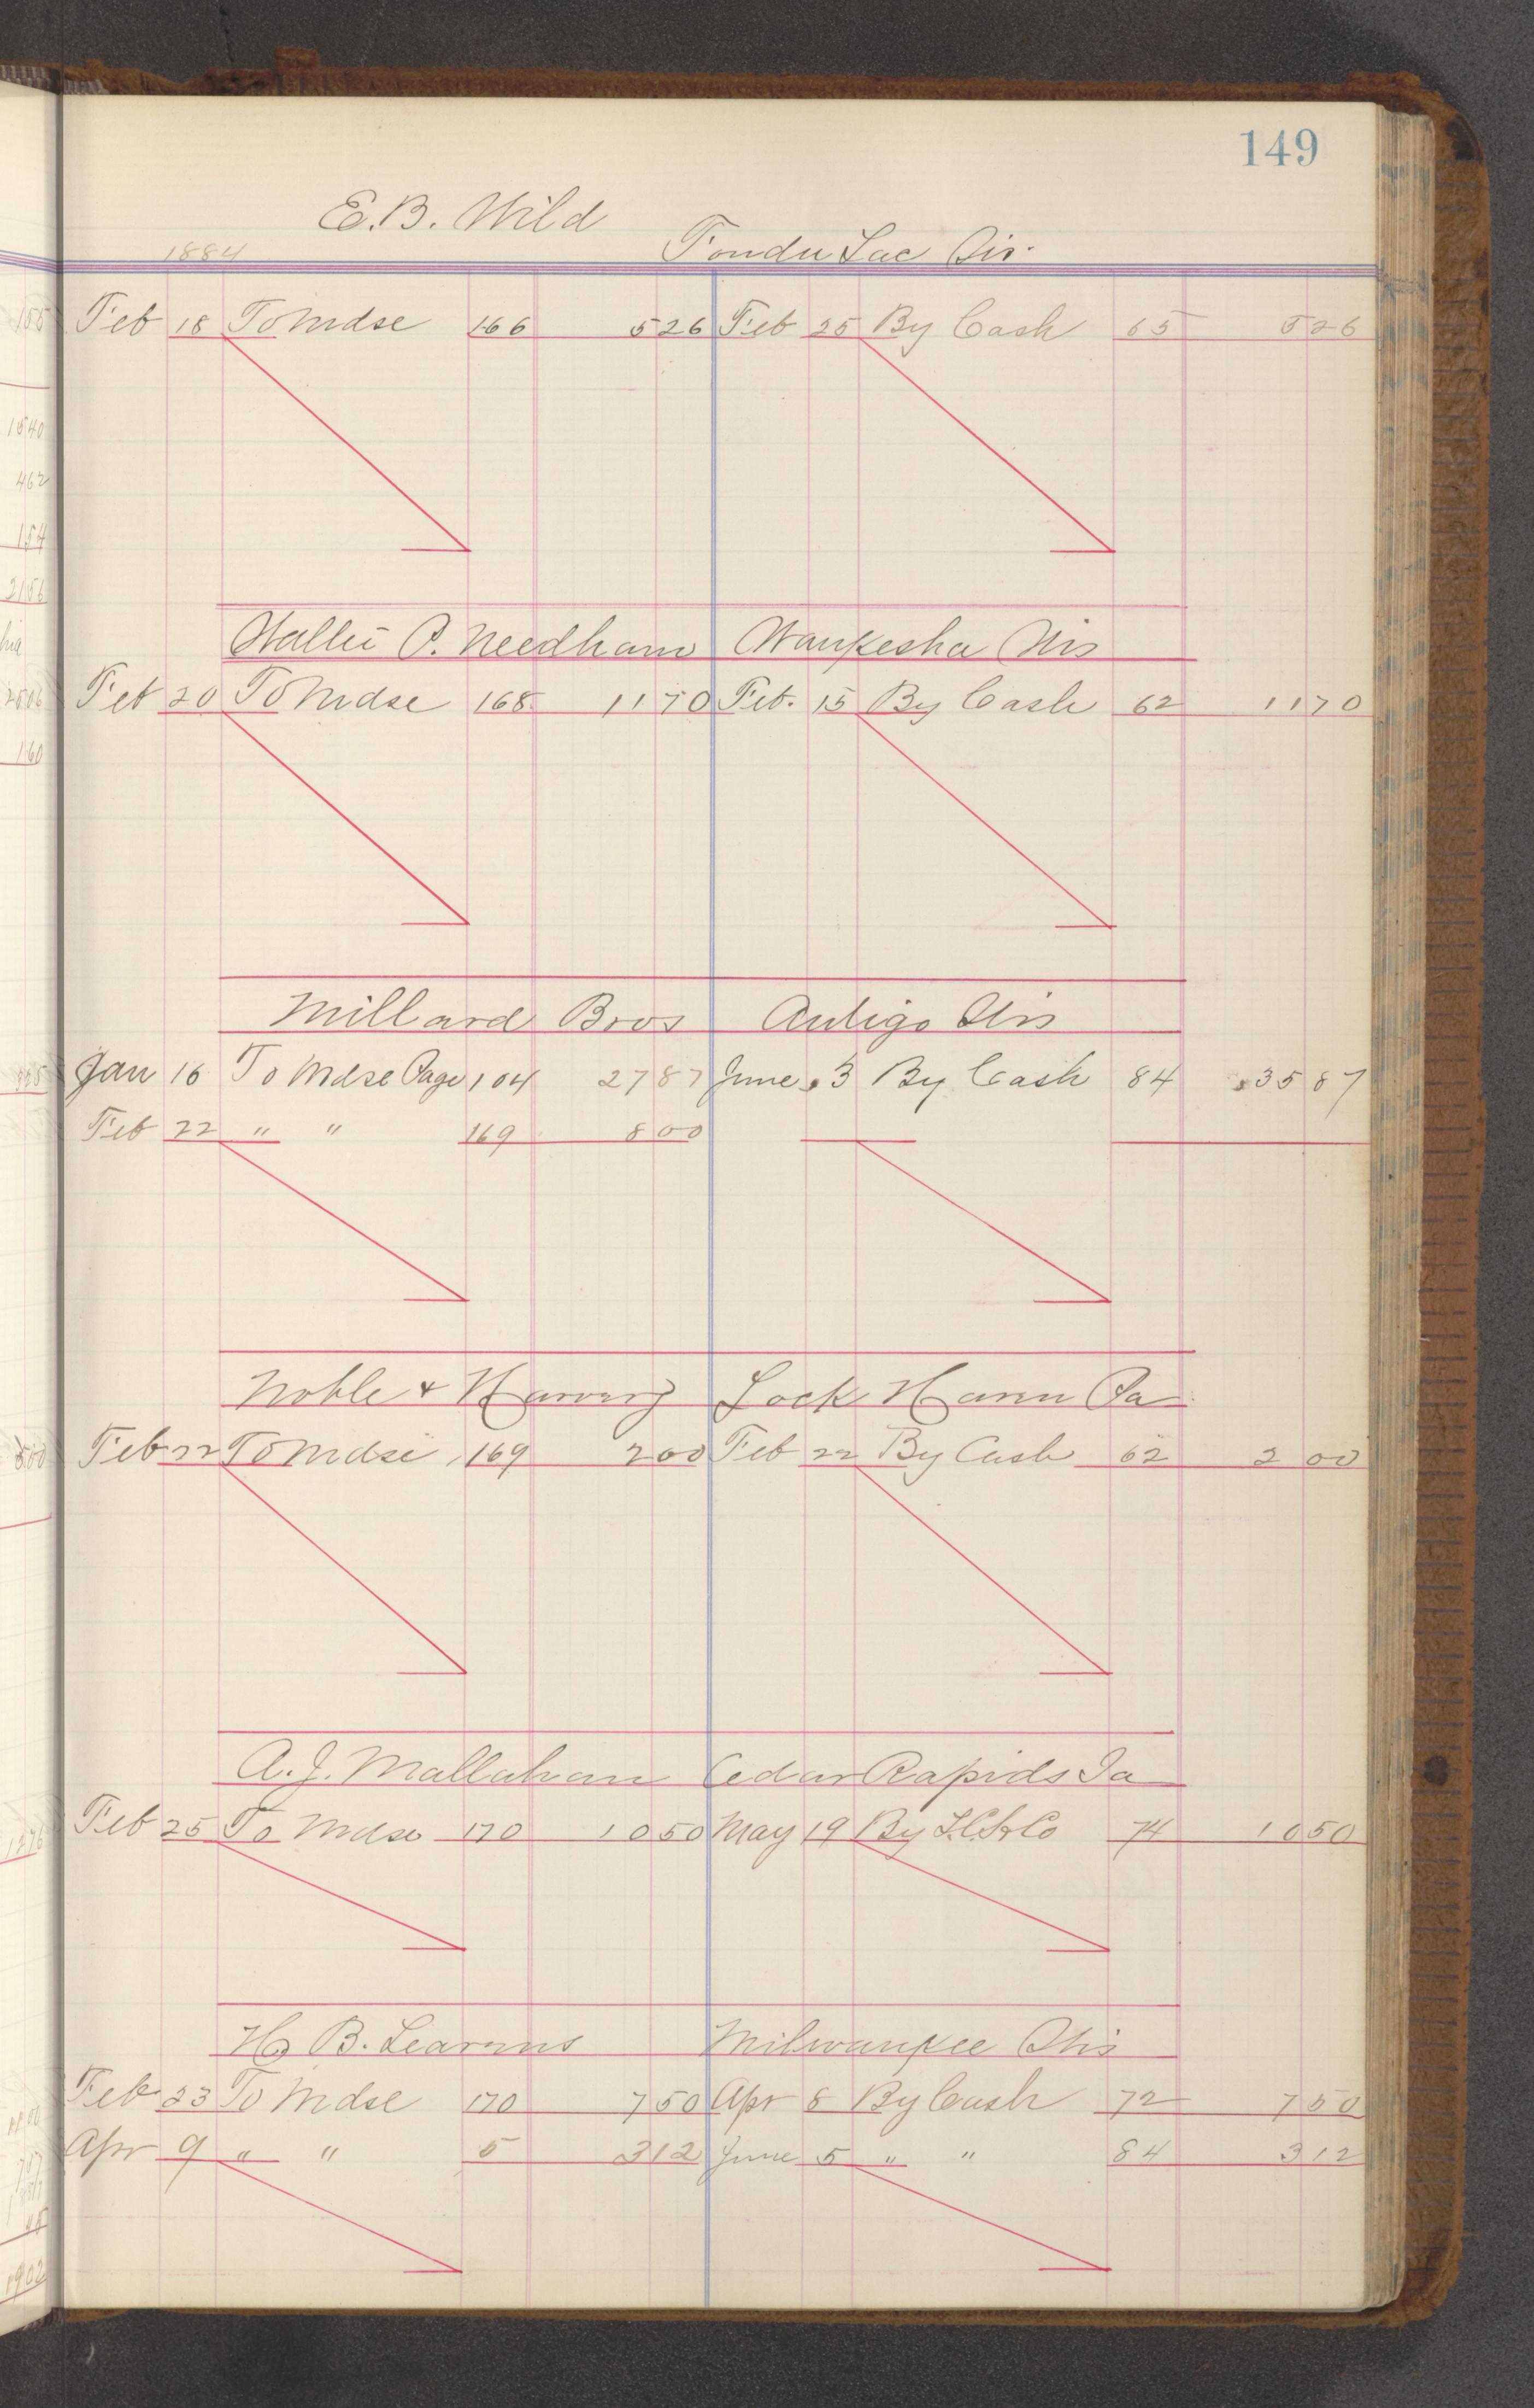 149
E.B. Wild Fondu Lac Wis.
1884
Feb 18 To Mdse 166 526 Feb 25 By Cash 65 526
P. Needham Waukesha Wis
Feb 20 To Mdse 168 1170 Feb. 15 By Cash 62 1170
Millard Bros Antigo Wis
Jan 16 To Mdse Page 104 2787 June 3 By Cash 84 3587
Feb 22 " " 169 800
Noble & Harvey Lock Haven Pa
Feb 22 To Mdse 169 200 Feb 22 By Cash 62 2 00
A.J. Mallahan Cedar Rapids Ia
Feb 25 To Mdse 170 1050 May 19 By & Co 74 1050
H. B. Learnus Milwaukee Wis
Feb 23 To Mdse 170 750 Apr 8 By Cash 72 750
Apr 9 " " 5 312 June 5 " " 84 312